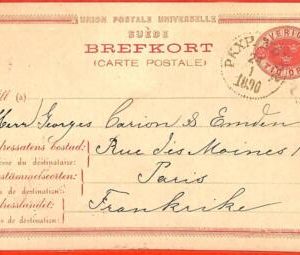 UNION POSTALE UNIVERSELLE
SUÈDE
BREFKORT
(CARTE POSTALE)
SVERIGE
PKXP
1890
Till (à)
Herr Georges Carion & Emden
Adressatens Bostad:
Rue des Moines
Adresse du destinataire:
Bestämmelseorten:
Paris
Lieu de destination:
Adresslandet:
Frankrike
Pays de destination: